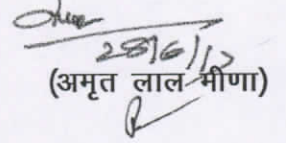 28/6/17
(अमृत लाल मीणा)